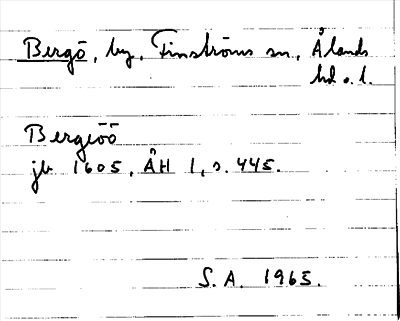 Bergö, by, Finströms sn, Ålands
hd o. l.
Bergiöö
jb 1605, ÅH 1, s. 445.
S.A. 1965.